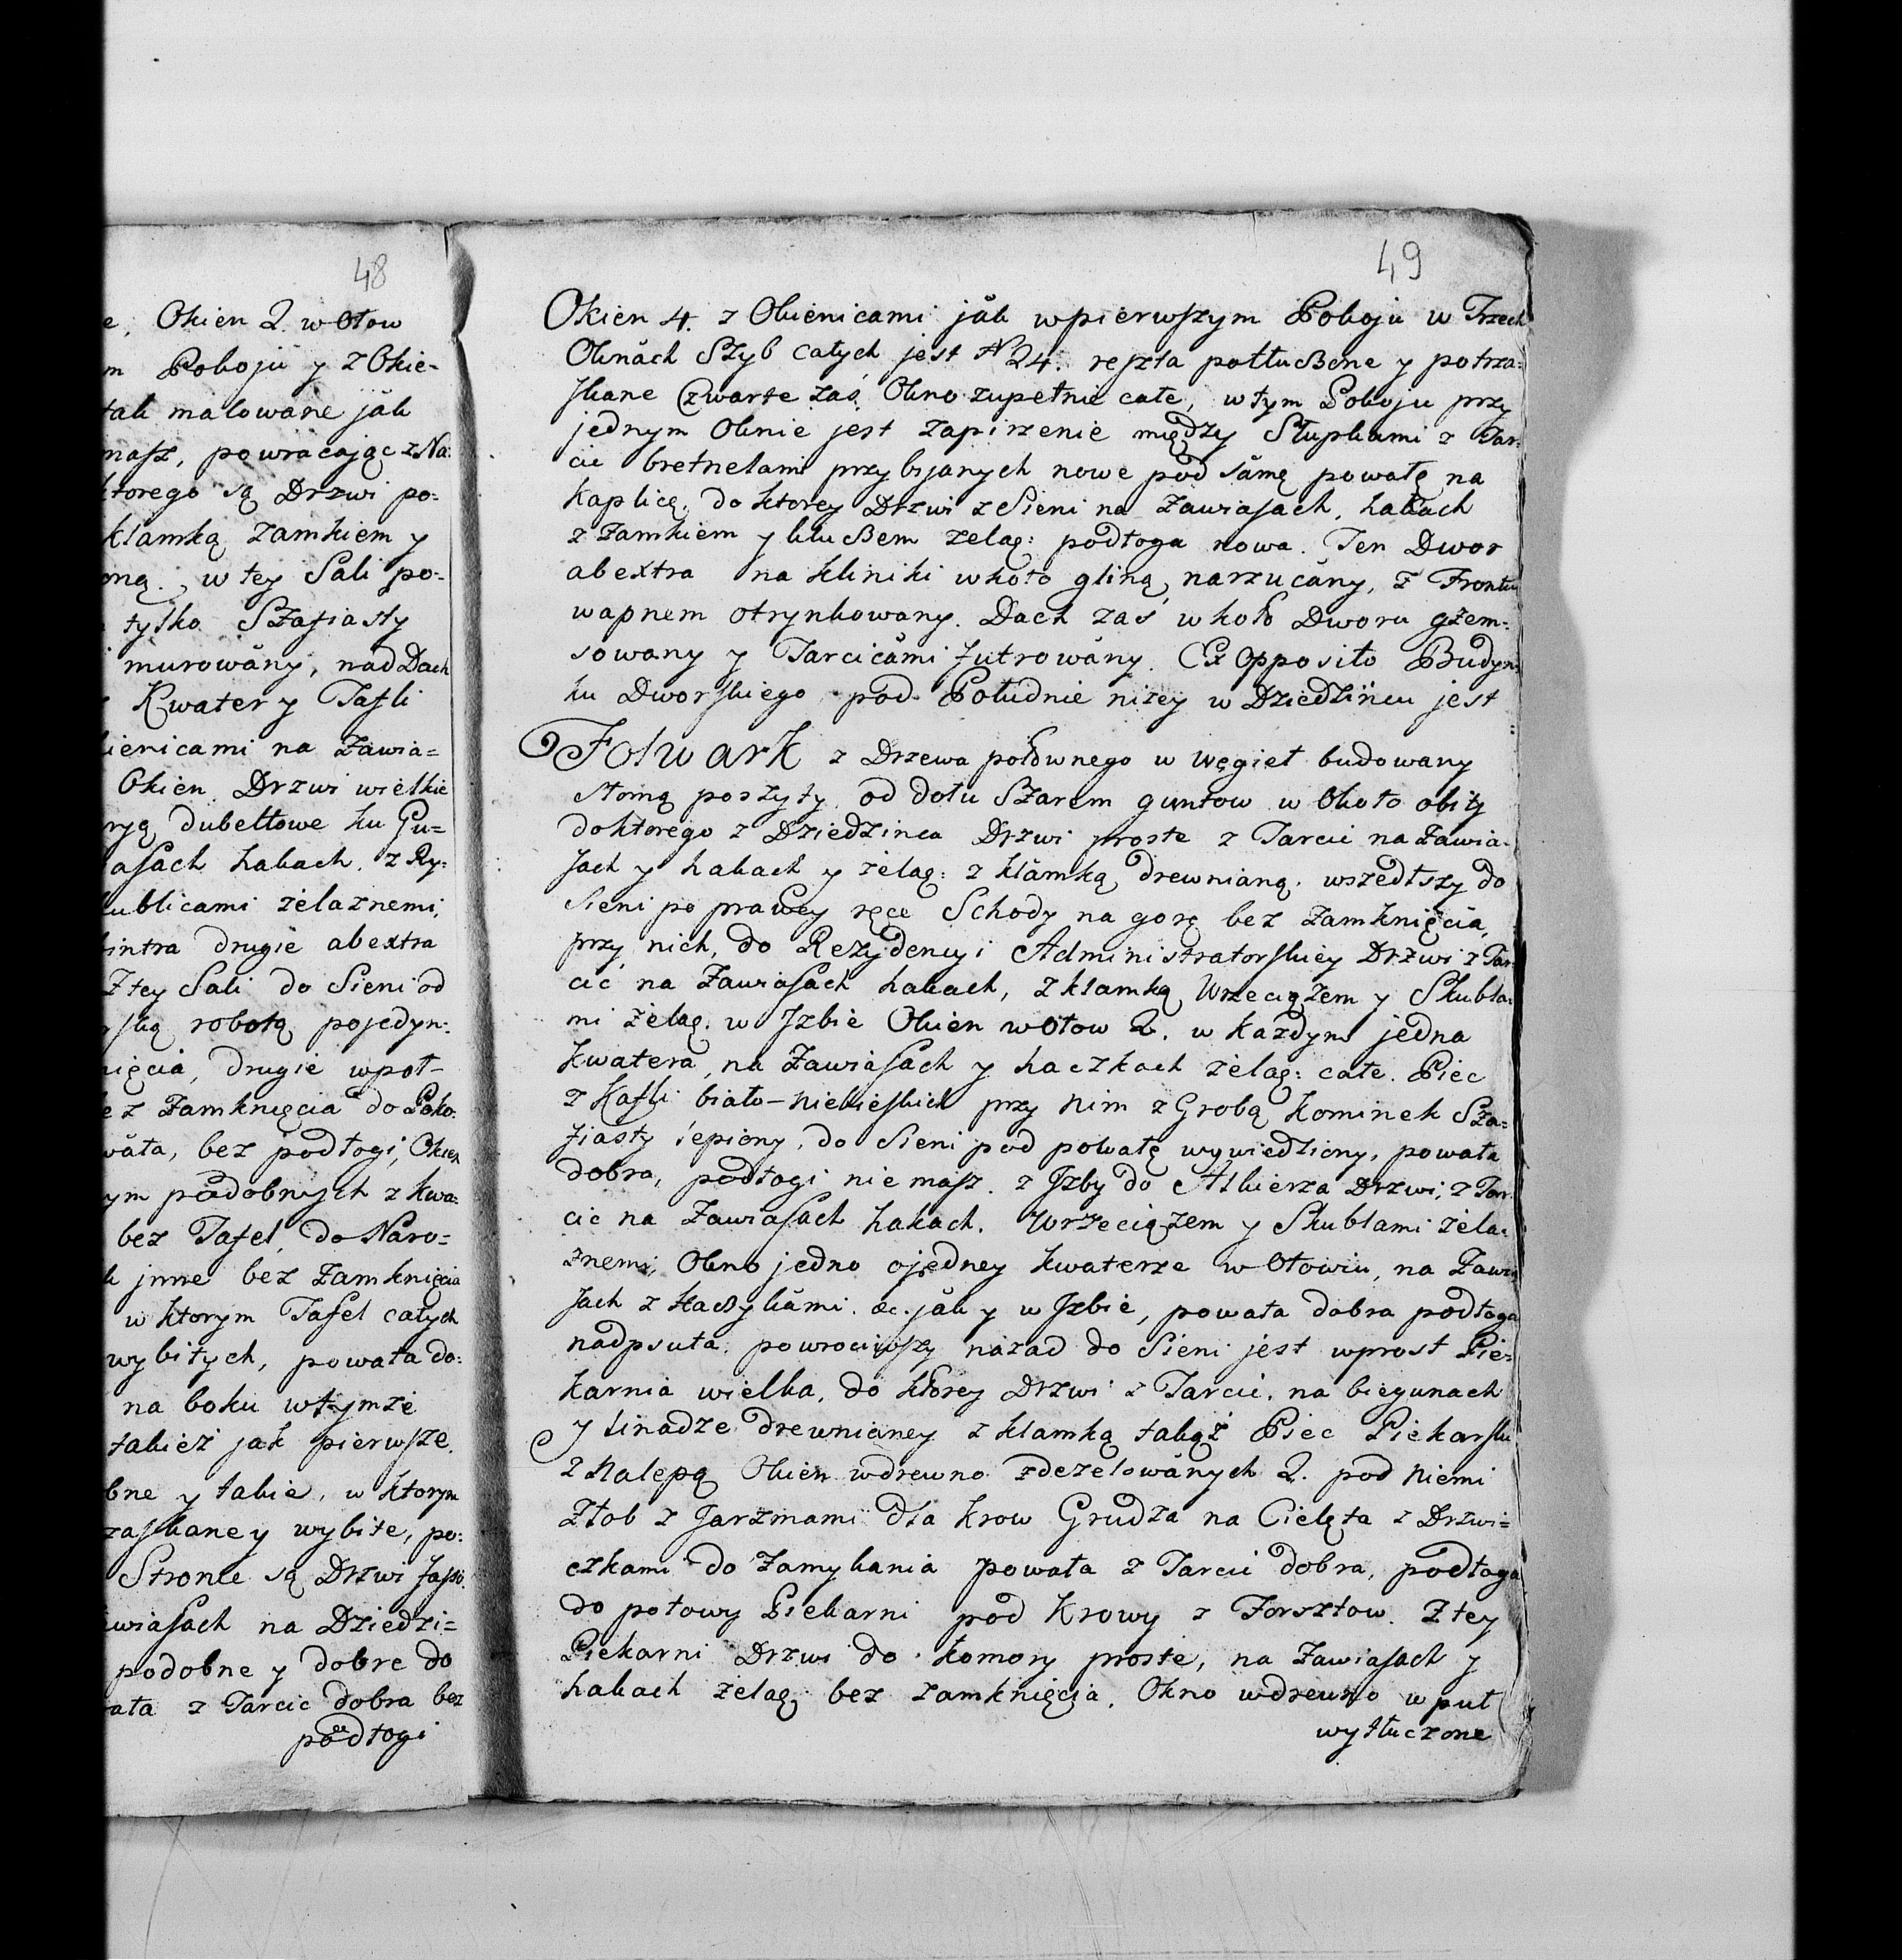 48
e, Okien 2. w Ołow
m Pokoju y z Okie-
tak malowane ják
masz, powracając z Na:
ktorego są Drzwi po=
klamką zamkiem y
oną. w tey Sali po-
tylko Szafiasty
murowány, nad Dach
Kwatery Tafli
ienicami na Zawia=
Okien Drzwi wielkie
ryą dubeltowe ku Gu=
asach hakach. z Ry:
kublicami żelaznemi,
intra drugie abextra
Z tey Sali do Sieni od
rską robotą pojedyn:
nięcia, drugie wpoł-
ez Zamknięcia do Poko:
wáta, bez podłogi, Okien
ym podobnych z kwa:
bez Tafel, do Naro=
k jnne bez zamknięcia
w ktorym Tafel całych
wybitych, powała do:
na boku wtymże
takież jak pierwsze.
bne y takie, w ktorym
zaskane y wybite, po:
Stronie są Drzwi
wiasach na Dziedzi=
podobne y dobre do
ała z Tarcic dobra bez
podłogi
49
Okien 4. z Okienicami ják wpierwszym Pokoju w Trzech
Oknách Szyb całych jest N 24. reszta potłuczone y potrza:
skane Czwarte zaś Okno zupełnie całe, w tym Pokoju przy
jednym Oknie jest zapirzenie między Słupkami z Tar:
cic bretnelami przybijanych nowe pod sámą powałę na
kaplicę, do ktorey Drzwi z Sieni na zawiasach, hakach
z Zamkiem y kluczem zelaz: podłoga nowa. Ten Dwor
abextra na kliniki wkoło gliną narzucány, z Frontu
wapnem otrynkowany. Dach zaś wkoło Dworu gzem:
sowany y Tarcicámi futrowány. Ex Opposito Budyn
ku Dworskiego pod Południe niżey w Dziedzińcu jest
Folwark z Drzewa połownego w węgieł budowany
słomą poszyty, od dołu Szarem guntow w Około obity
do ktorego z Dziedzinca Drzwi proste z Tarcic na Zawia-
sach y hakach y żelaz: z klámką drewnianą. wszedłszy do
Sieni po prawey ręce Schody na gorę bez zamknięcia,
przy nich, do Rezydencyi Administratorskiey Drzwi z Tar
cić na Zawiasach hakach, z klamką Wrzeciążem y Skubla:
mi żelaz. w Jzbie Okien w Ołow 2. w każdym jedna
kwatera, na Zawiasach y haczkach zelaz: całe. Piec
z Kafli biało-niebieskich przy nim z Grobą kominek Sza=
fiasty lepiony, do Sieni pod powałę wywiedziony, powała
dobra, podłogi nie masz. z Jzby do Alkierza Drzwi, z Tar
cic na Zawiasach hakach. Wrzeciążem y Skublami żela:
znemi, Okno jedno ojedney kwaterze w Ołowiu, na Zawia
sach z Haczykámi. &c. ják y w Jzbie, powała dobra podłoga
nadpsuta. powrociwszy názad do Sieni jest wprost Pie=
karnia wielka, do ktorey Drzwi z Tarcic, na biegunach
y Linadze drewnianey z klamką takąż Piec Piekarski
z Nalepą Okien wdrewno zdezelowánych 2. pod niemi
Złob z Jarzmami dla krow Grudza na Cielęta z Drzwi=
czkami do Zamykania powała z Tarcic dobra, podłoga
do połowy Piekarni pod Krowy z Forsztow. Z tey
Piekarni Drzwi do komory proste, na Zawiasach y
hakach żelaz, bez zamknięcia. Okno wdrewno w puł
wytłuczone